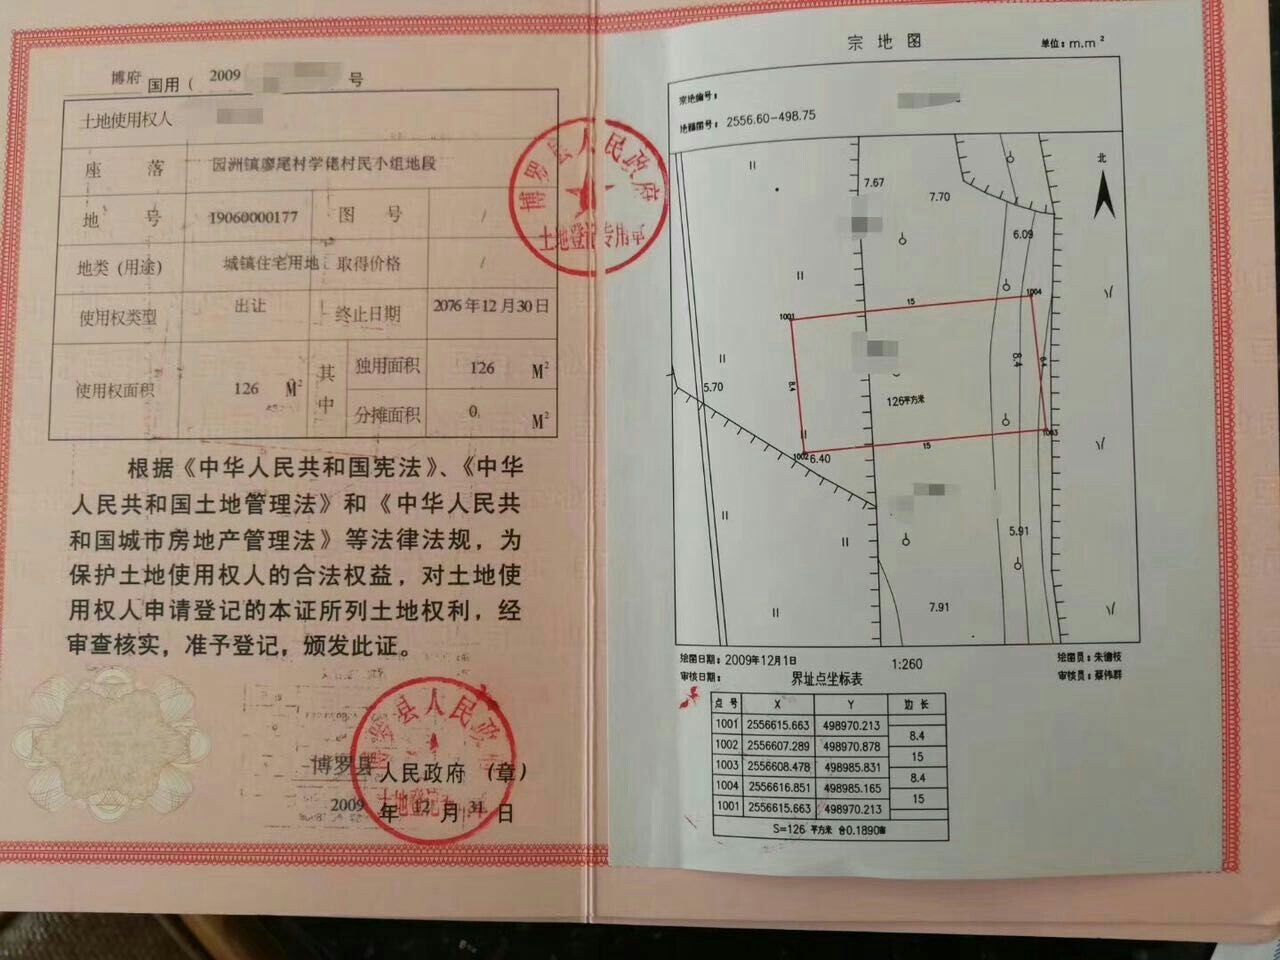 博府 国用（ 2009 号
土地使用权人
座落 园洲镇廖尾村学佬村民小组地段
地号 19060000177 图号 /
地类（用途） 城镇住宅用地 取得价格 /
使用权类型 出让 终止日期 2076年12月30日
使用权面积 126 M² 其中 独用面积 126 M²
分摊面积 0 M²
根据《中华人民共和国宪法》、《中华
人民共和国土地管理法》和《中华人民共
和国城市房地产管理法》等法律法规，为
保护土地使用权人的合法权益，对土地使
用权人申请登记的本证所列土地权利，经
审查核实，准予登记，颁发此证。
博罗县 人民政府 （章）
2009 年 12 月 31 日
博罗县人民政府
土地登记专用章
宗地图
单位：m.m²
宗地编号：
地籍图号： 2556.60-498.75
北
7.67
7.70
6.09
1001
15
1004
8.4
8.4
8.4
5.70
126平方米
1002
6.40
15
1003
5.91
7.91
绘图日期：2009年12月1日
1:260
绘图员：朱德枝
审核日期：
审核员：蔡伟群
界址点坐标表
点号 X Y 边长
1001 2556615.663 498970.213
8.4
1002 2556607.289 498970.878
15
1003 2556608.478 498985.831
8.4
1004 2556616.851 498985.165
15
1001 2556615.663 498970.213
S=126 平方米 合0.1890亩